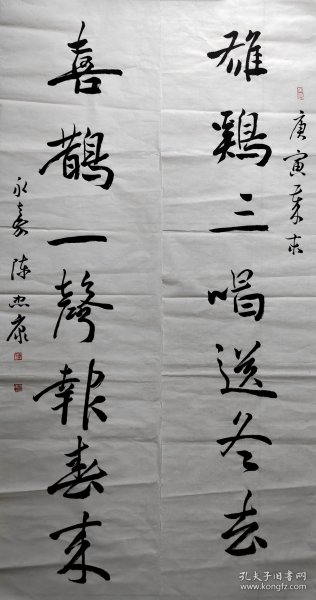 庚寅
雄鷄三唱送冬去
喜鵲一聲報春来
永嘉陈忠康
孔夫子旧书网
www.kongfz.com